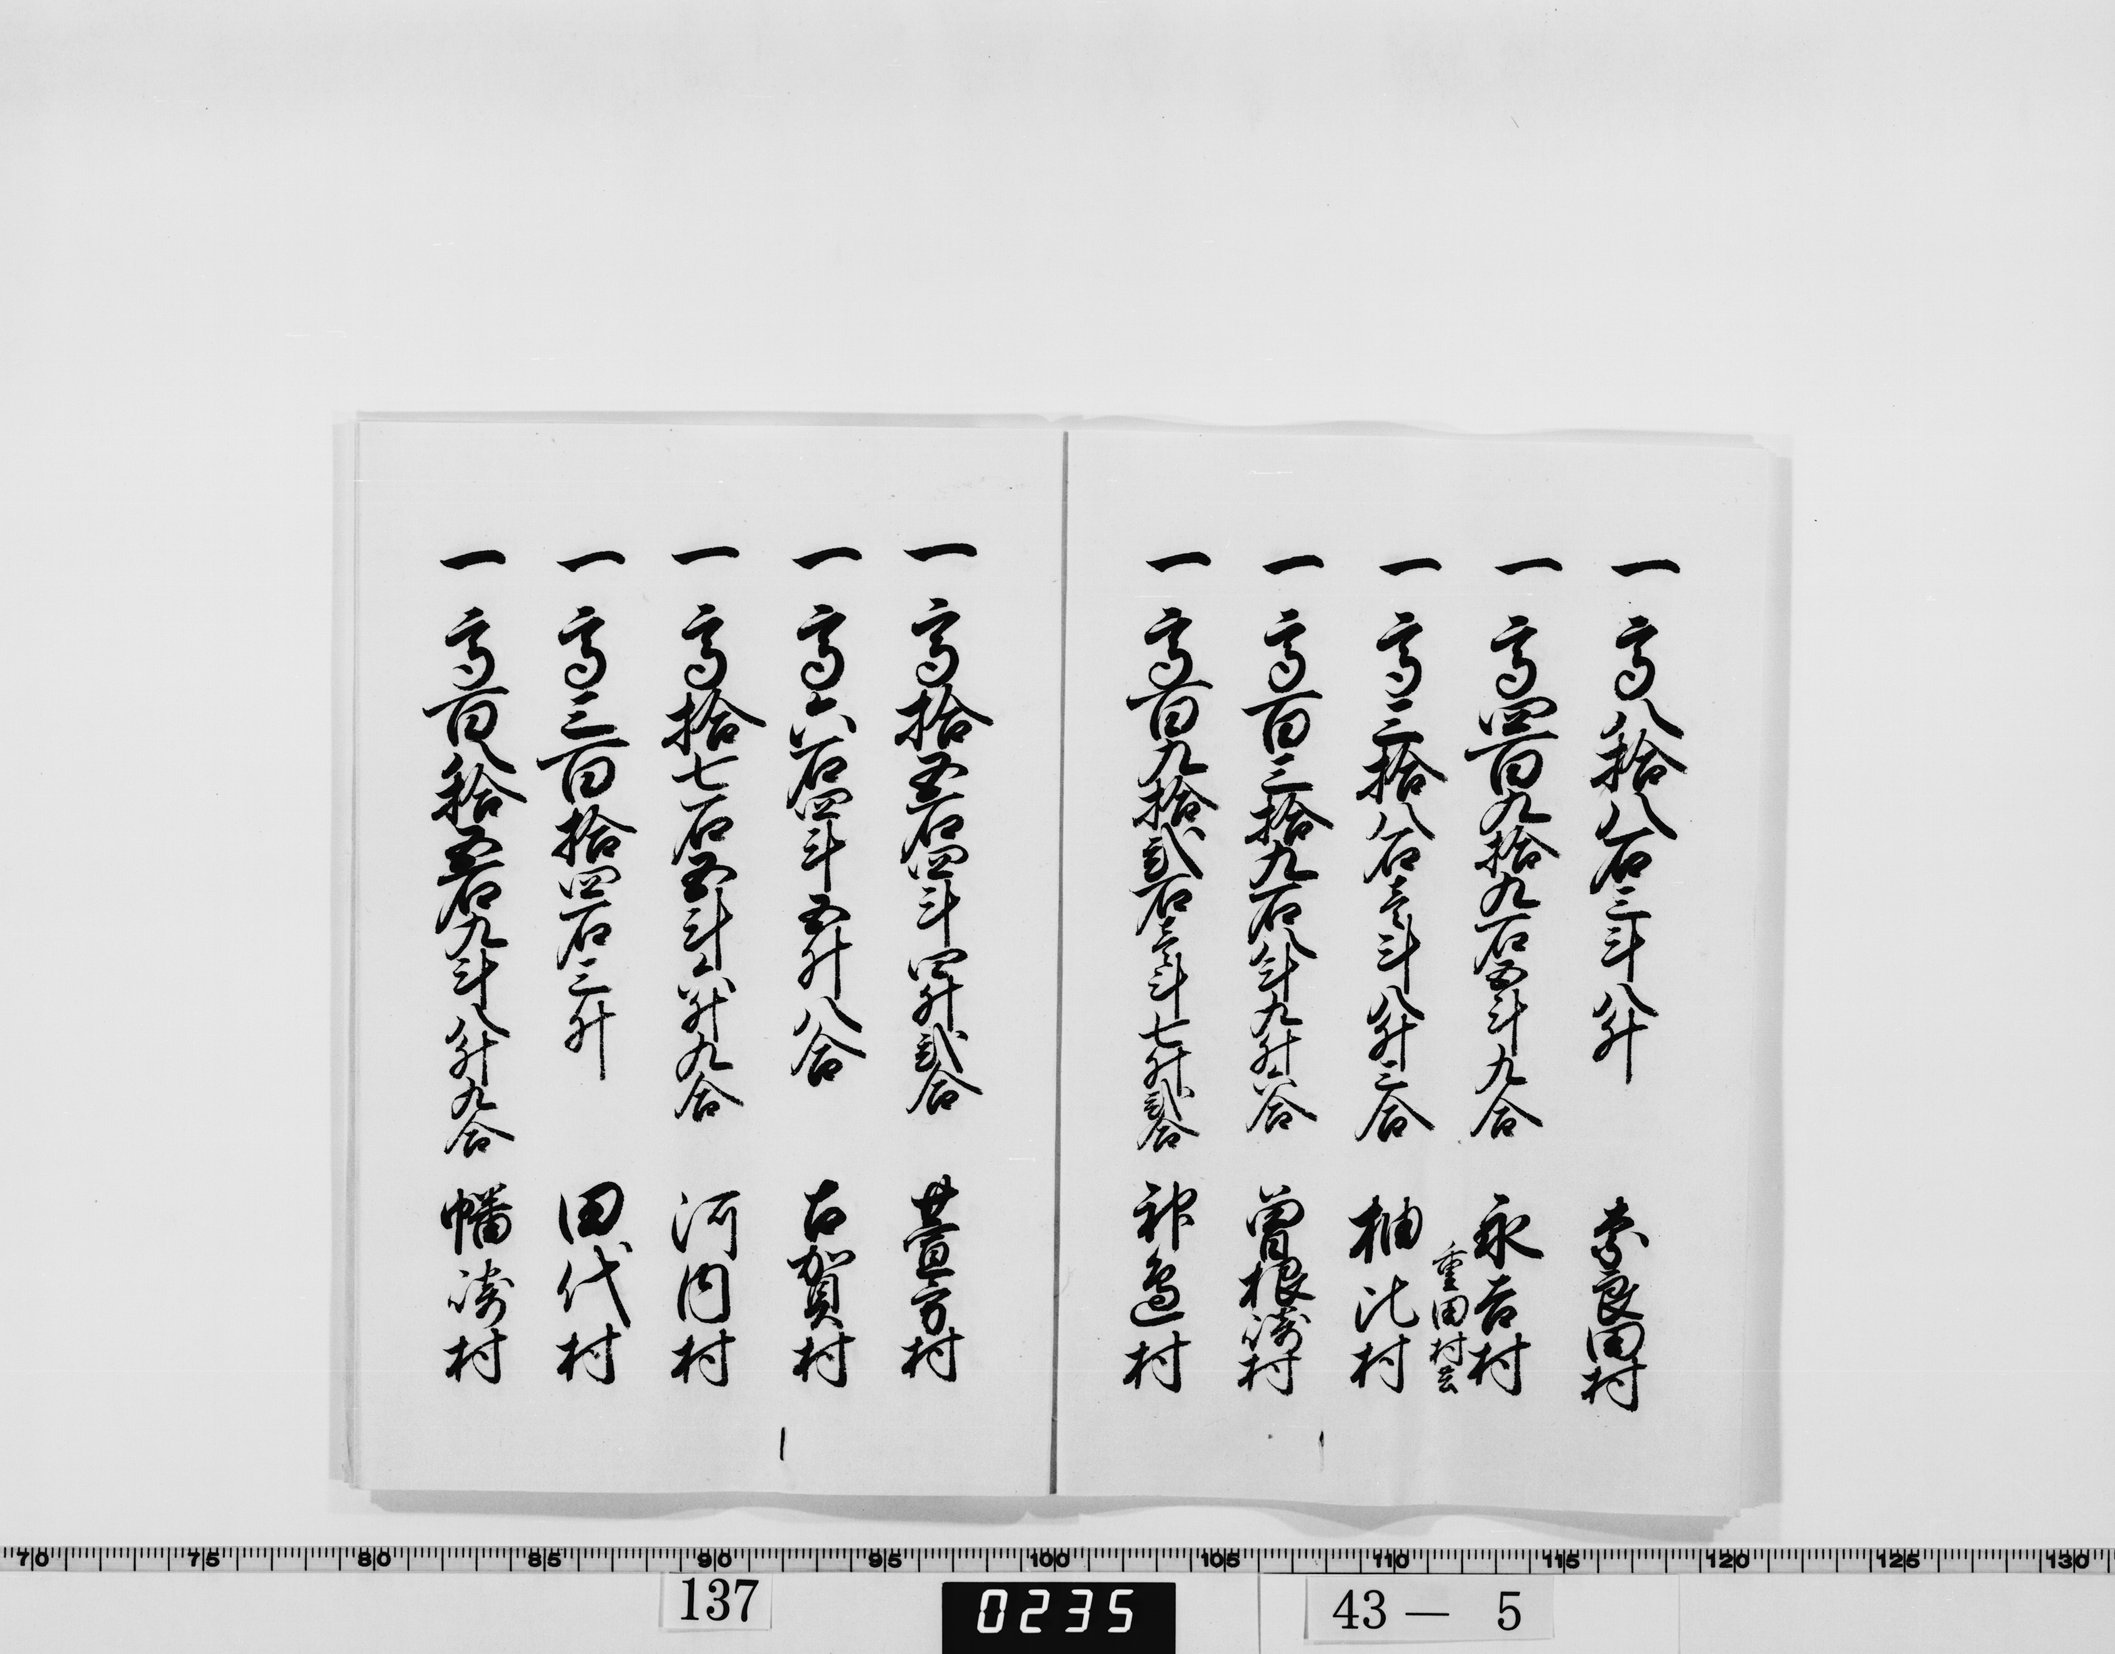 一高八拾八石三斗八升　奈良田村
一高四百九拾九石五斗九合　永吉村
重田村共云
一高三拾八石壱斗八升三合　柚比村
一高百三拾九石八斗九升六合　曽根崎村
一高百九拾貳石壱斗七升貳合　神邊村
一高拾五石四斗四升貳合　萱方村
一高六石四斗五升八合　古賀村
一高拾七石五斗六升九合　河内村
一高三百拾四石三升　田代村
一高百八拾五石九斗八升九合　幡崎村
70 75 80 85 90 95 100 105 110 115 120 125 130
137
0235
43— 5